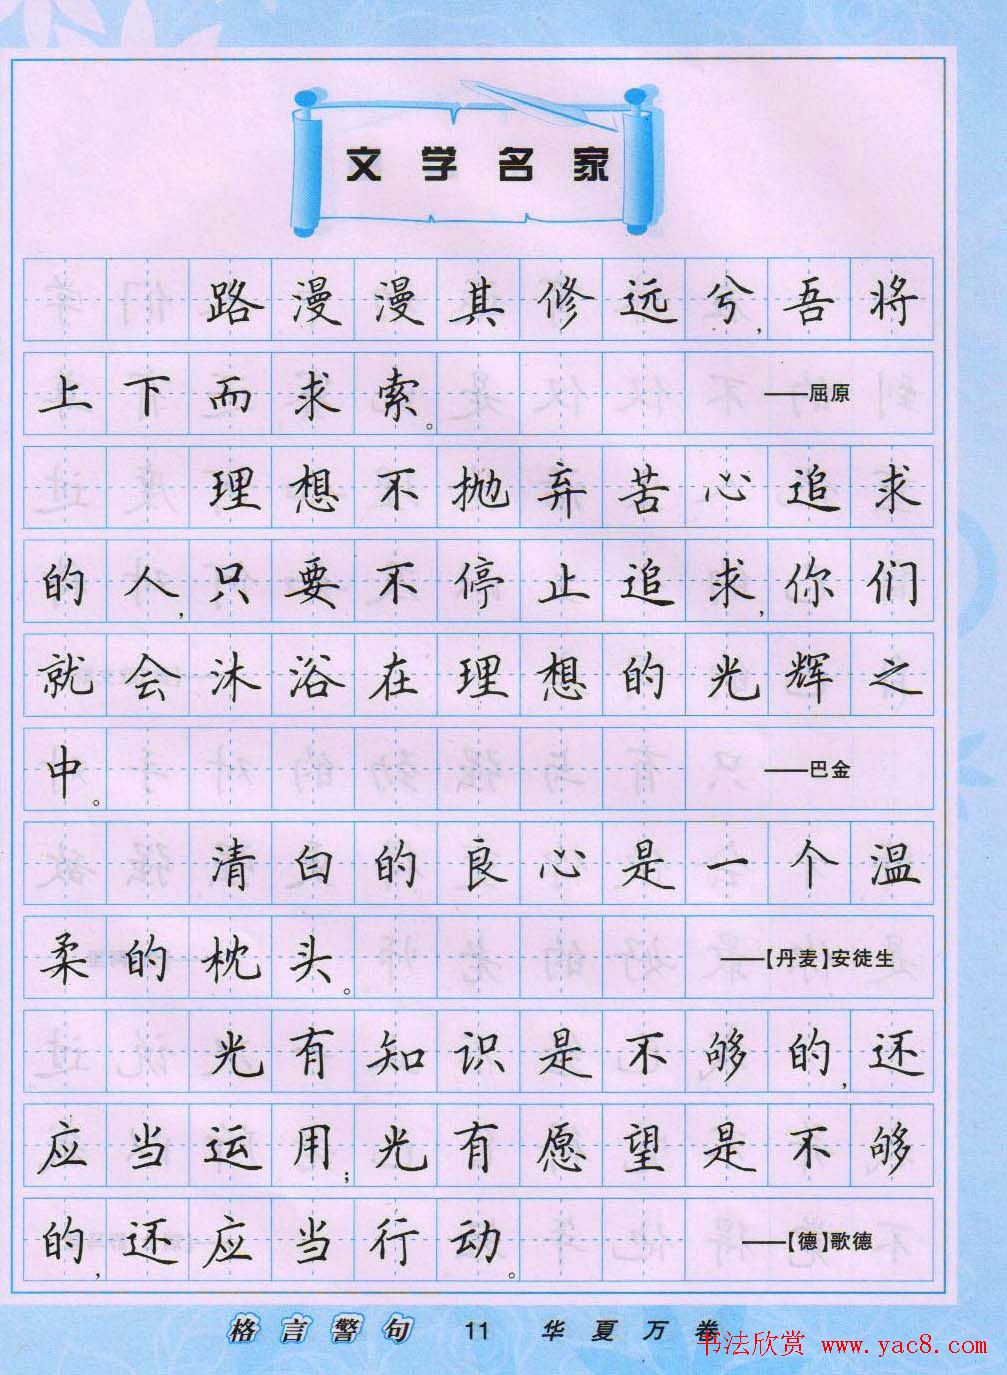 文学名家
路漫漫其修远兮,吾将
上下而求索。 ——屈原
理想不抛弃苦心追求
的人,只要不停止追求,你们
就会沐浴在理想的光辉之
中。 ——巴金
清白的良心是一个温
柔的枕头。 ——【丹麦】安徒生
光有知识是不够的,还
应当运用;光有愿望是不够
的,还应当行动。 ——【德】歌德
格言警句 11 华夏万卷
书法欣赏 www.yac8.com